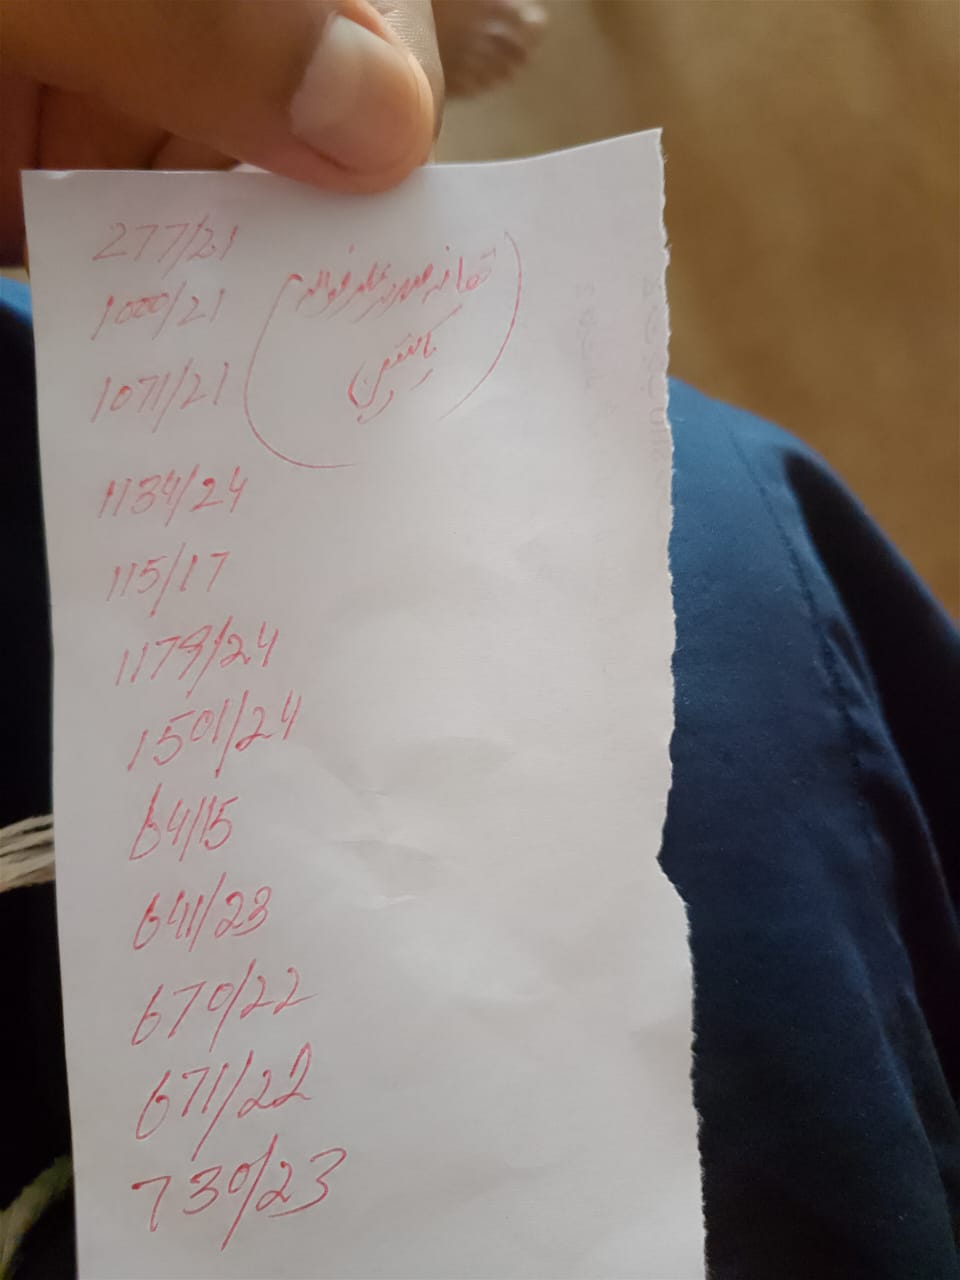 277/21
1000/21
1071/21
تھانہ صدر
پاکپتن
1134/24
115/17
1179/24
1501/24
64/15
641/23
670/22
671/22
730/23